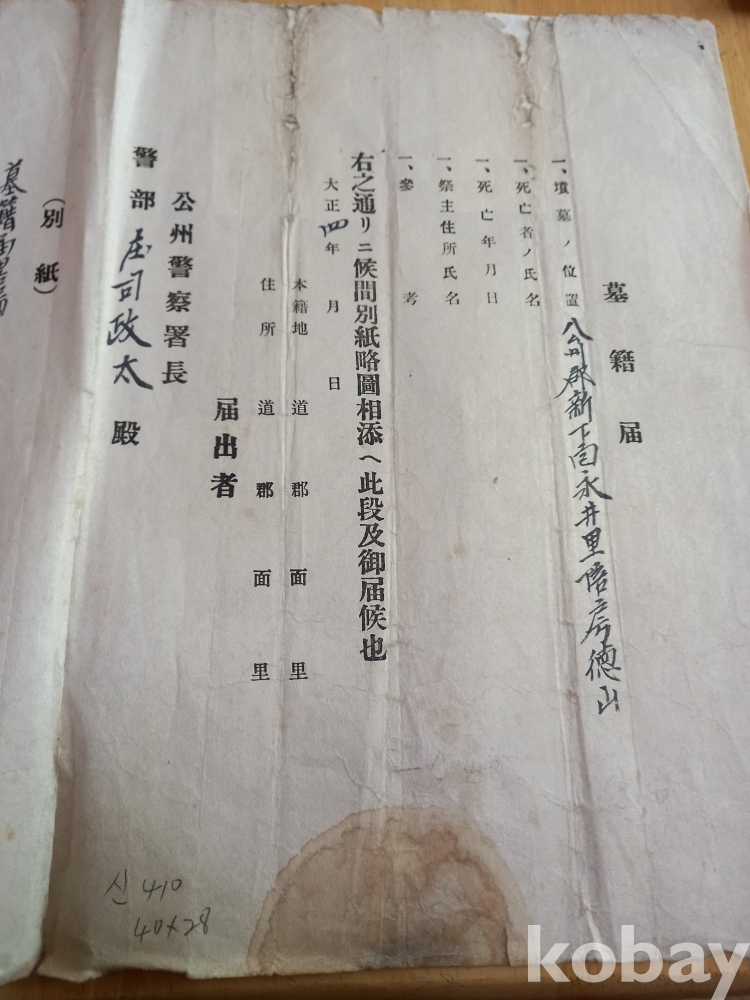 墓籍届
一、墳墓ノ位置 公州郡新下面永井里 房徳山
一、死亡者ノ氏名
一、死亡年月日
一、祭主住所氏名
一、參考
右之通リニ候間別紙略圖相添ヘ此段及御届候也
大正四年 月 日
本籍地 道 郡 面 里
住所 道 郡 面 里
届出者
公州警察署長
警部 庄司政太 殿
(別紙)
墓籍届
신 410
40×28
kobay